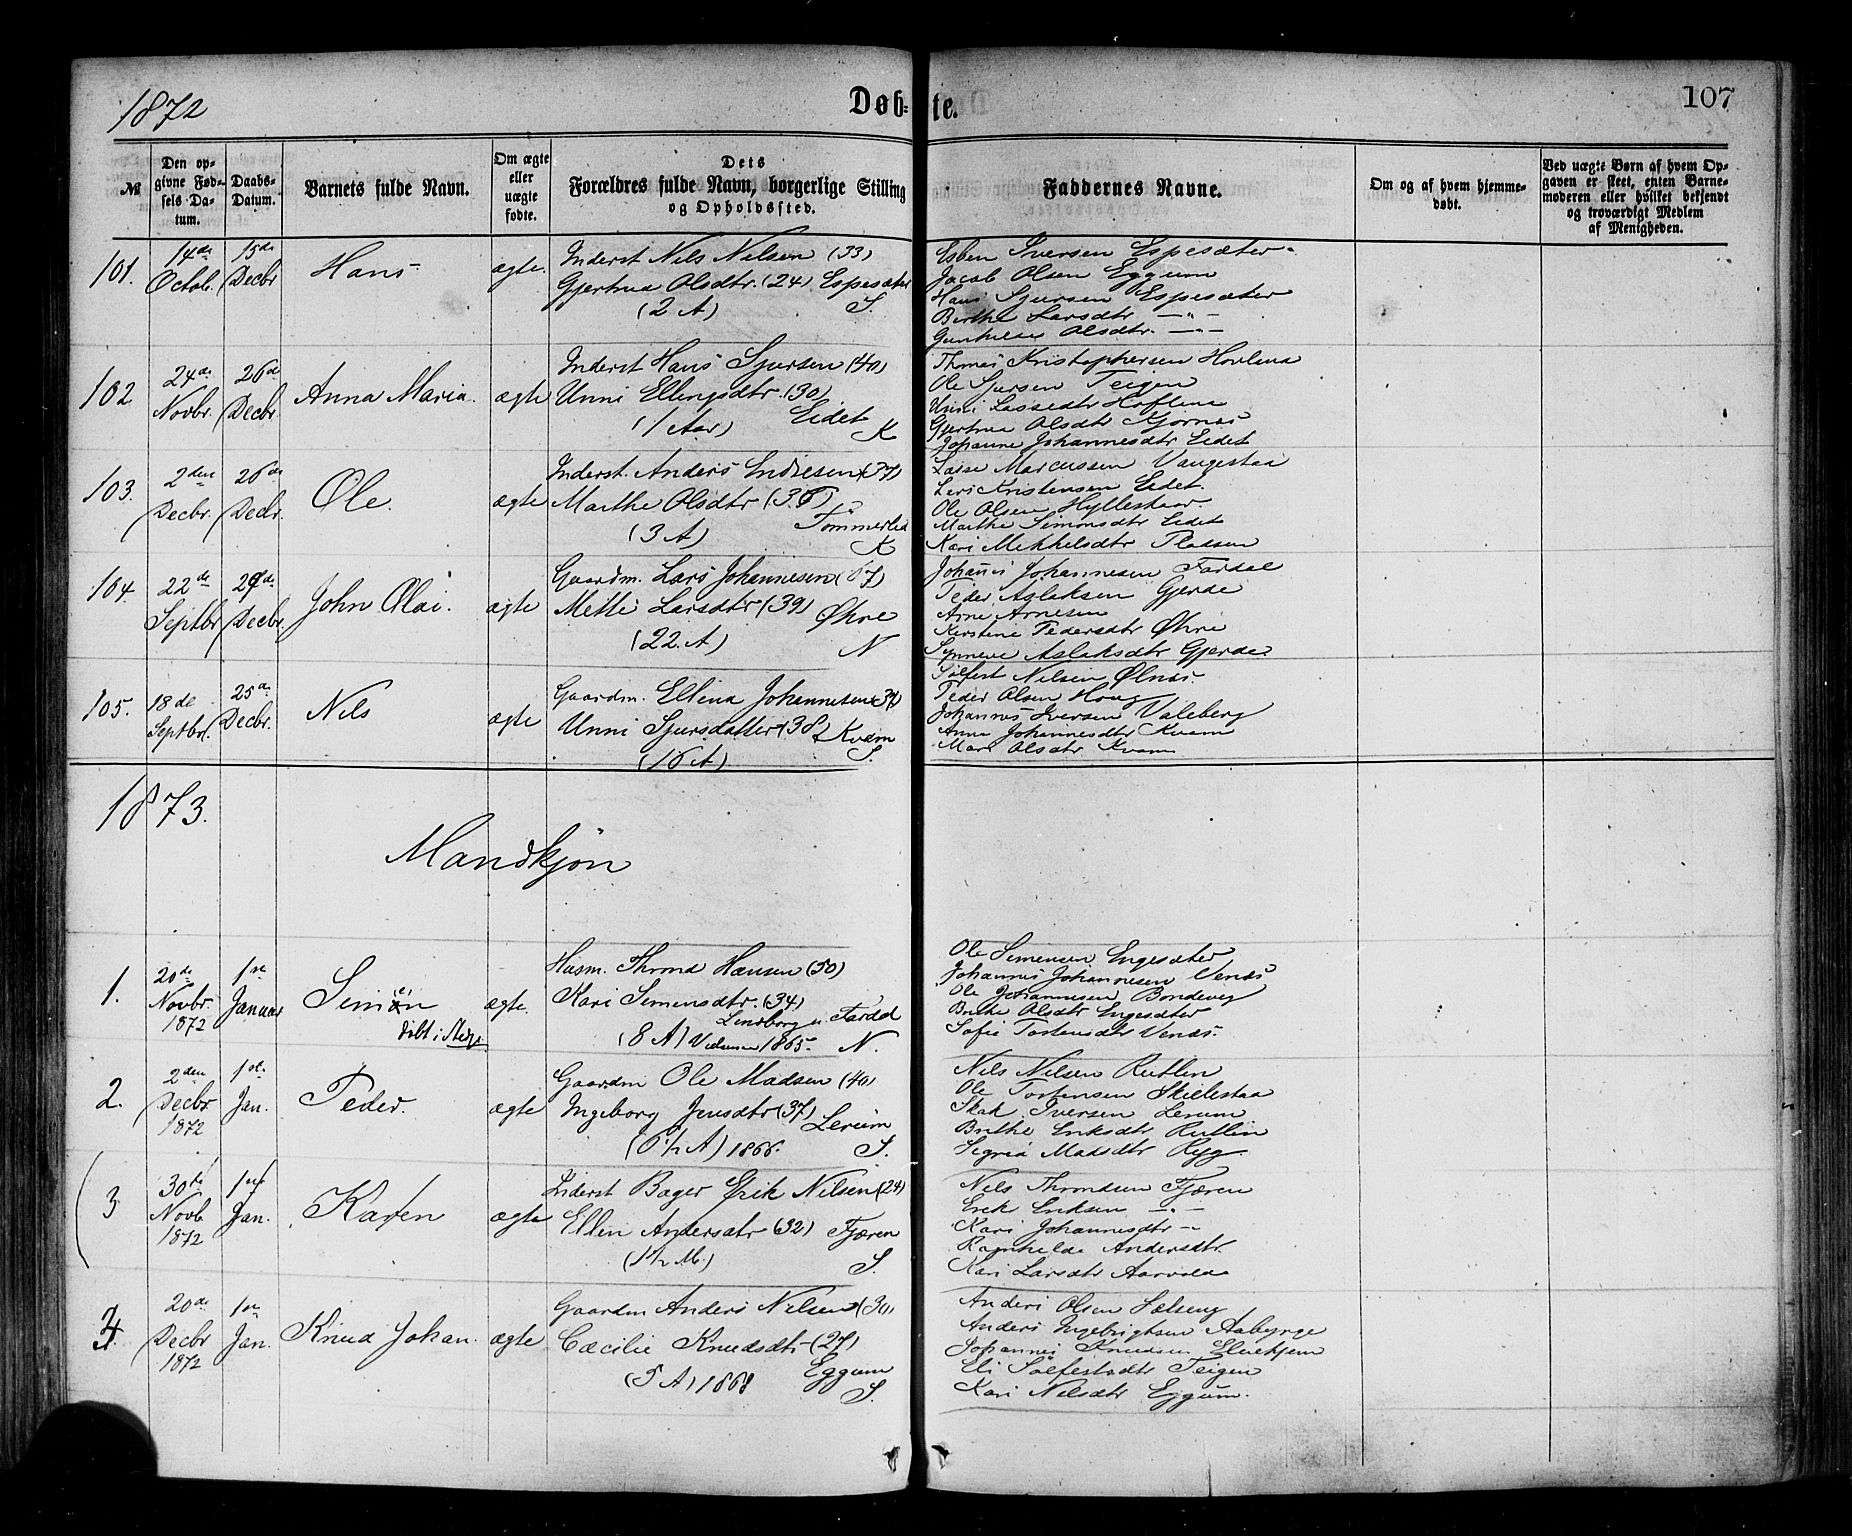 1872
Døb-te.
107
№
Den op-
givne Fød-
sels Da-
tum.
Daabs-
Datum.
Barnets fulde Navn.
Om ægte
eller
uægte
fødte.
Dets
Forældres fulde Navn, borgerlige Stilling
og Opholdssted.
Faddernes Navne.
Om og af hvem hjemme-
døbt.
Ved uægte Børn af hvem Op-
gaven er skeet, enten Barne-
moderen eller hvilket bekjendt
og troværdigt Medlem
af Menigheden.
101.
14de
Octob.
15de
Decbr
Hans
ægte.
Inderst Nils Nilsen (33)
Gjertrud Olsdtr. (24) Espesæter
(2 A) S.
Esben Iversen Espesæter
Jacob Olsen Eggum
Hans Sjursen Espesæter
Berthe Larsdtr — " —
Gunhilde Olsdtr. — " —
102
24de
Novbr.
26de
Decbr.
Anna Maria.
ægte
Inderst Hans Sjursen (40)
Unni Ellingsdtr. (30)
(1 Aar) Eidet
K
Thomas Kristophersen Hovland
Ole Sjursen Teigen
Unni Lassedtr
Gjertrud Olsdtr Kjørnæs
Johanne Johannesdtr Eidet
103.
2den
Decbr.
26de
Decbr.
Ole.
ægte
Inderst. Anders Endresen (37)
Marthe Olsdtr
(3 A) Tømmerlid
K
Lasse Marcussen Vangestad
Kristensen Eidet.
Ole Olsen Hyllestad
Marthe Simonsdtr Eidet
Kari Mikkelsdtr Pladsen
104.
22de
Septbr
29de
Decbr.
John Olai.
ægte
Gaardm. Lars Johannesen
Mette Larsdtr (39) Øhre
(22. A) N
Johannes Johannesen Fardal
Peder Aslaksen Gjerde
Arne Arnesen
Kerstine Pedersdtr Øhre
Synneve Aslaksdtr Gjerde.
105.
18de
Septbr.
25de
Decbr.
Nils
ægte
Gaardm. Elling Johannesen
Unni Sjursdatter (38) Kvam
(16 A) S.
Sølfest Nilsen Ølnæs.
Peder Olsen Houg
Johannes Iversen Valeberg
Anna Johannesdtr Kvam
Mari Olsdtr Kvam
1873.
Mandkjøn
1.
20de
Novbr.
1872
1ste
Januar
Simen
døbt i
ægte.
Husm. Thrond Hansen (50)
Kari Simensdtr. (34)
Fardal
(8 A) 1865. N.
Ole Simensen Engesæter
Johannes Johannesen Venæs
Ole Johannesen Bondevig
Brithe Olsdtr Engesæter
Sofie Torstensdtr Venæs.
2.
2den
Decbr.
1872
1ste
Jan.
Peder.
ægte
Gaardm Ole Madsen (40)
Ingeborg Jensdtr (37) Lerum
(6½ A) 1866. S.
Nils Nilsen Rutlin
Ole Torstensen Skjelestad
Skak Iversen Lerum
Brithe Eriksdtr Rutlin
Sigrid Madsdtr Ryg
3
30te
Novb.
1872
1ste
Jan.
Karen
ægte
Inderst Bager Erik Nilsen (24)
Ellen Andersdtr (32) Fjæren
(1½ M.) S.
Nils Throndsen Fjæren
Erik Eriksen — " —
Kari Johannesdtr — " —
Ragnhilde Andersdtr
Kari Larsdtr Aarvold
4.
20de
Decbr
1872
1ste
Jan.
Knud Johan.
ægte
Gaardm Anders Nilsen (30)
Cæcilie Knudsdtr (27)
Eggum
(5 A) 1868 S.
Anders Olsen Sælseng
Anders Ingebrigtsen Aabyrge
Johannes Knudsen
Eli Sølfestsdtr Teigen
Kari Nilsdtr Eggum.